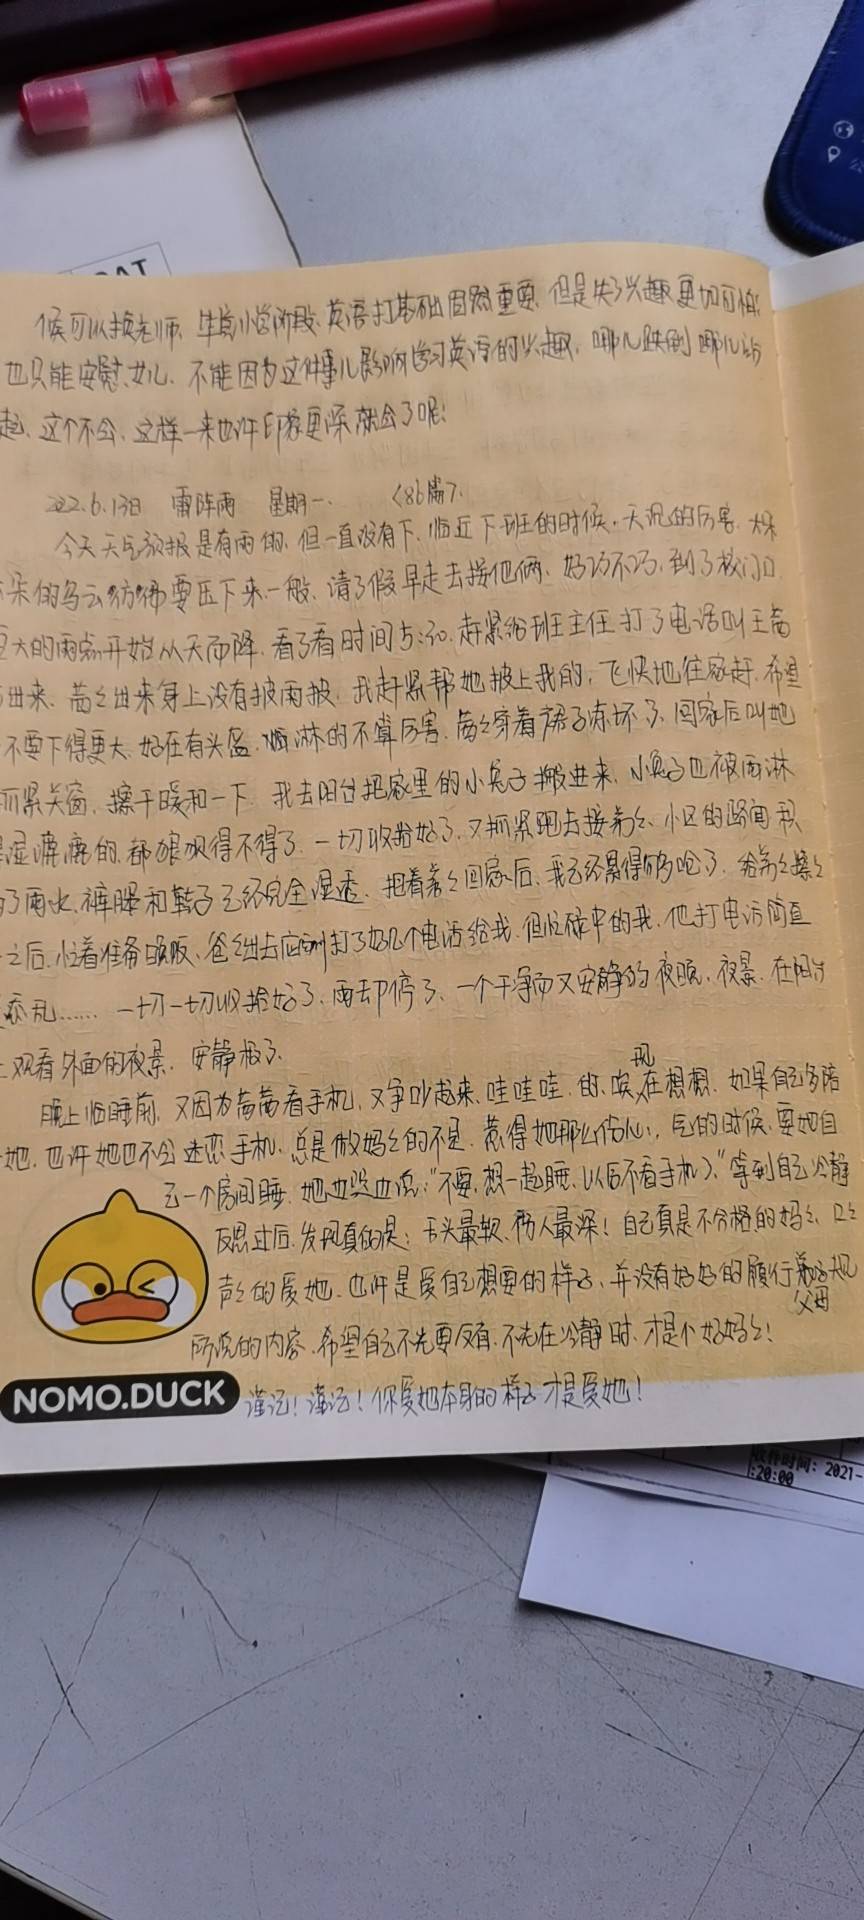 候可以换老师, 毕竟小学阶段, 英语打基础固然重要, 但是失了兴趣更加可怕;
也只能安慰女儿, 不能因为这件事儿影响学习英语的兴趣, 哪儿跌倒哪儿站
起, 这个不会, 这样一来也许印象更深就会了呢!
2022.6.13日 雷阵雨 星期一. <86篇>.
今天天气预报是有雨的, 但一直没有下, 临近下班的时候, 天沉的厉害, 大朵
朵的乌云彷彿要压下来一般, 请了假早走去接他俩, 好巧不巧, 到了校门口
大的雨点开始从天而降, 看了看时间5:20, 赶紧给班主任打了电话叫王
出来, 出来身上没有披雨披, 我赶紧帮她披上我的, 飞快地往家赶, 希望
不要下得更大, 好在有头盔, 淋的不算厉害, 穿着裙子冻坏了, 回家后叫她
抓紧关窗, 擦干暖和一下, 我去阳台把家里的小兔子搬进来, 小兔子也被雨淋
湿漉漉的, 都狼狈得不得了, 一切收拾好了, 又抓紧跑去接弟々, 小区的路面积
了雨水, 裤腿和鞋子已经完全湿透, 抱着弟々回家后, 我已经累得够呛了, 给弟々擦々
之后, 忙着准备晚饭, 爸々出去应酬打了好几个电话给我, 但忙碌中的我, 他打电话简直
添乱...... 一切一切收拾好了, 雨却停了, 一个干净而又安静的夜晚, 夜景, 在阳台
上观看外面的夜景, 安静极了.
晚上临睡前, 又因为看手机, 又争吵起来, 哇哇哇, 的, 唉, 现在想想, 如果自己多陪
她, 也许她也不会迷恋手机, 总是做妈々的不是, 惹得她那么伤心, 气的时候, 要她自
己一个房间睡, 她边哭边说:"不要, 想一起睡, 以后不看手机了."等到自己冷静
反思过后, 发现真的是: 舌头最软, 伤人最深! 自己真是不合格的妈々, 口々
声々的爱她, 也许是爱自己想要的样子, 并没有好好的履行 父母规
所说的内容, 希望自己不光要反省, 不光在冷静时, 才是个好妈々!
谨记! 谨记! 你爱她本身的样子才是爱她!
NOMO.DUCK
收件时间: 2021-
:20:00